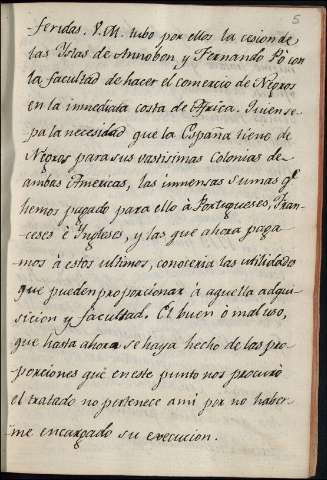 5
feridas. V.M. tubo por ellos la cesion de
las Yslas de Annobon, y Fernando Pò con
la facultad de hacer el comercio de Negros
en la inmediata costa de Africa. Quien se-
pa la necesidad que la España tiene de
Negros para sus vastisimas colonias de
ambas Americas, las inmensas sumas qe.
hemos pagado para ello à Portugueses, Fran-
ceses è Yngleses, y las que ahora paga-
mos à estos ultimos, conoceria las utilidades
que pueden proporcionar à aquella adqui-
sicion y facultad. El buen ò mal uso,
que hasta ahora se haya hecho de las pro-
porciones que en este punto nos procurò
el tratado no pertenece a mi por no haber-
me encargado su execucion.